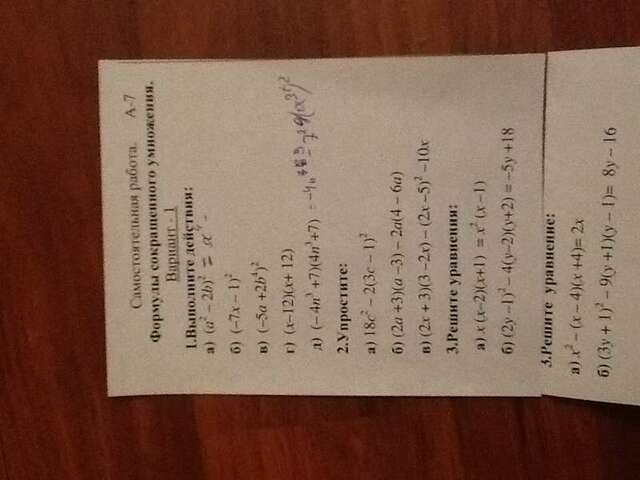 Самостоятельная работа. А-7
Формулы сокращенного умножения.
Вариант - 1
1.Выполните действия:
а) (a² − 2b)² = a⁴ -
б) (−7x − 1)²
в) (−5a +2b⁴)²
г) (x−12)(x+ 12)
д) (−4n³ +7)(4n³+7)
2.Упростите:
а) 18c² − 2(3c − 1)²
б) (2a +3)(a −3) − 2a(4 − 6a)
в) (2x + 3)(3 −2x) − (2x −5)² −10x
3.Решите уравнения:
а) x (x−2)(x+1) = x² (x −1)
б) (2y −1)² − 4(y−2)(y+2) = −5y +18
3.Решите уравнение:
а) x² − (x − 4)(x +4)= 2x
б) (3y + 1)² − 9(y +1)(y − 1)= 8y − 16